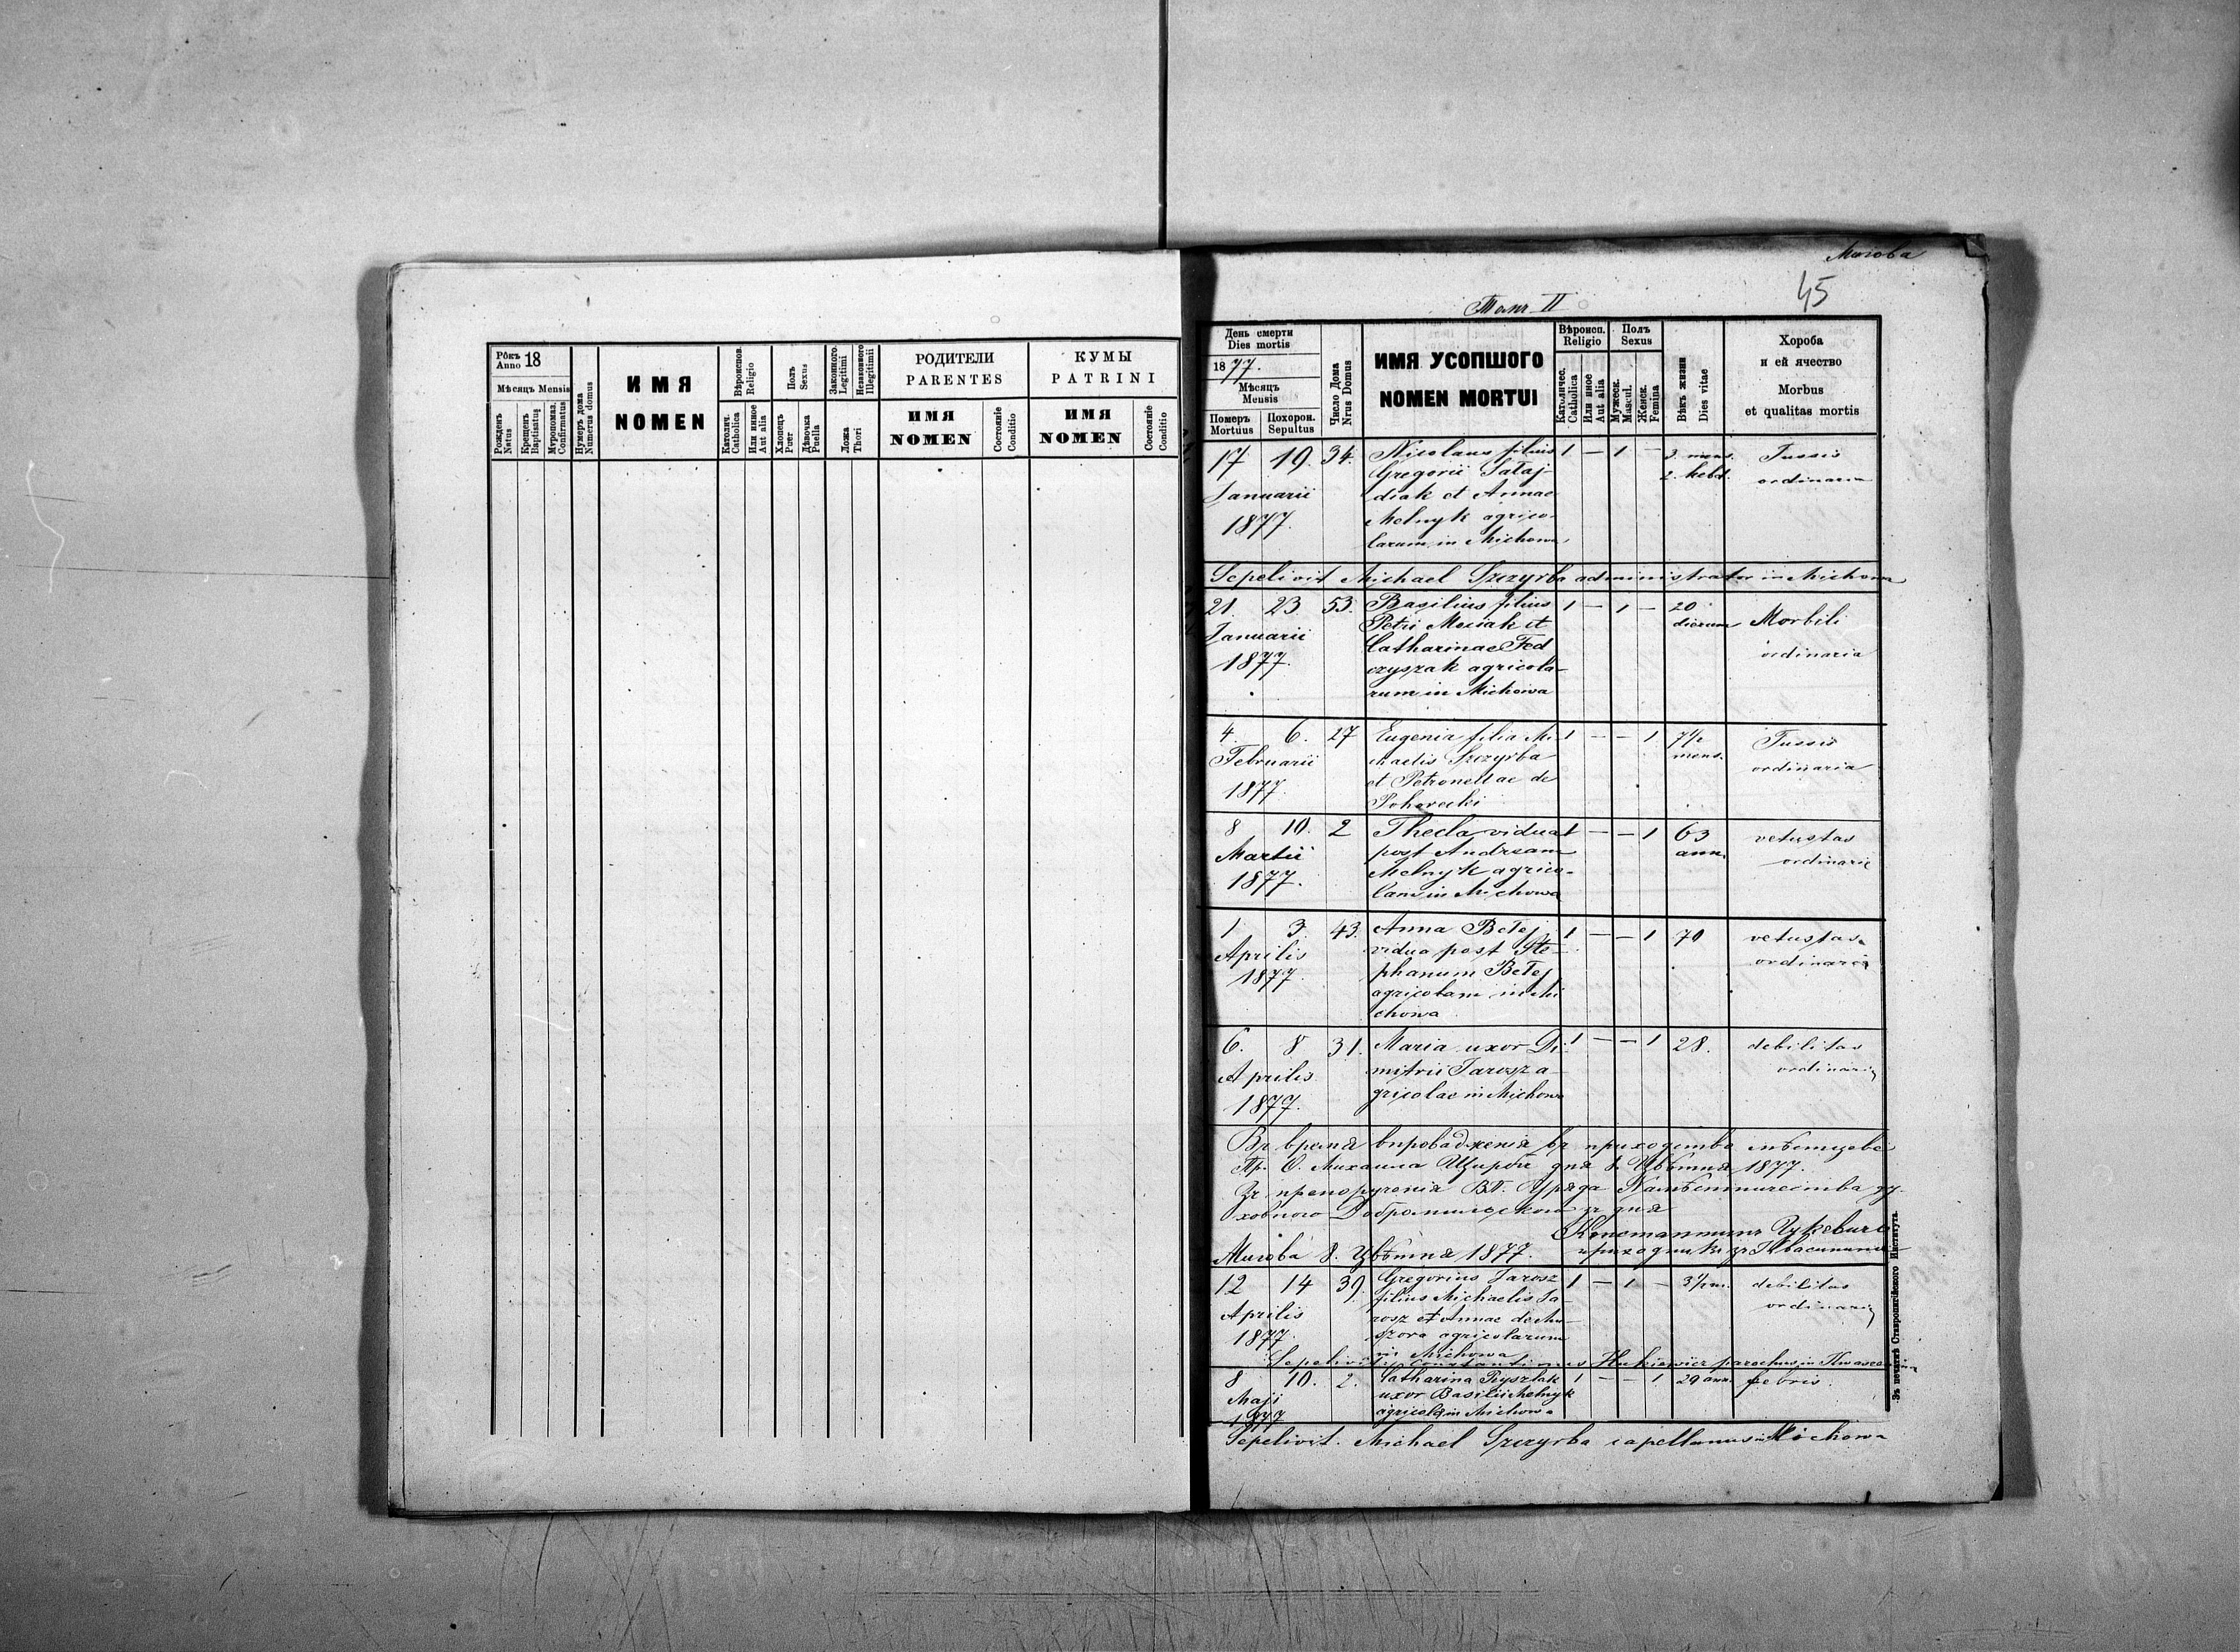 Рôкъ
Anno 18
Мѣсяцъ Mensis
Рожденъ
Natus
Крещенъ
Baptisatus
Муропомаз.
Confirmatus
Нумеръ дома
Numerus domus
ИМЯ
NOMEN
Вѣроиспов.
Religio
Католич.
Catholica
Или инное
Aut alia
Полъ
Sexus
Хлопецъ
Puer
Дѣвочка
Puella
Законного.
Legitimi
Незаконного
Illegitimii
Ложа
Thori
РОДИТЕЛИ
PARENTES
ИМЯ
NOMEN
Состояніе
Conditio
КУМЫ
PATRINI
ИМЯ
NOMEN
Состояніе
Conditio
45
II
День смерти
Dies mortis
1877.
Мѣсяцъ
Mensis
Померъ
Mortuus
Похорон.
Sepultus
Число Дома
Nrus Domus
ИМЯ УСОПШОГО
NOMEN MORTUI
Вѣроисп.
Religio
Католичес.
Catholica
Или иное
Aut alia
Полъ
Sexus
Мужеск.
Mascul.
Женск.
Femina
Вѣкъ жизни
Dies vitae
Хороба
и ей ячество
Morbus
et qualitas mortis
17 19. 34. Nicolaus filius 1 — 1 — mens. Tussis
Gregorii Sałaj- 2. hebd. ordinaria
Januarii diak et Annae
1877. Melnyk agrico-
larum in Michowa
Sepelivit Michael Szczyrba administrator in Michowa
21 23 53. Basilius filius 1 — 1 — 20 Morbili
Januarii Petri et dierum ordinaria
1877. Catharinae Fed
czyszak agricola-
rum in Michowa
4 6. 27 Eugenia filia Mi- 1 — — 1 7½ Tussis
Februarii chaelis Szczyrba mens. ordinaria
1877 et Petronellae de
Pohorecki
8 10. 2 Thecla vidua 1 — — 1 63 vetustas
Martii post Andream ann. ordinaria
1877. Melnyk agrico-
lam in Michowa
1 3 43. Anna Bełej 1 — — 1 70 vetustas
Aprilis vidua post Ste- ordinaria
1877. phanum Bełej
agricolam in Mi
chowa
6. 8 31. Maria uxor Di- 1 — — 1 28. debilitas
Aprilis mitrii Jarosz a- ordinaria
1877. gricolae in Michowa
Въ время впровадженія въ приходство
О. Михаила дня 8. Цвѣтня 1877.
Зъ препорученія ВП. Уряда Намѣстничества ду-
ховного Добромильского зъ дня
Константинъ
8. Цвѣтня 1877. приходникъ зъ
12 14 39. Gregorius Jarosz 1 — 1 — 3½ m. debilitas
Aprilis filius Michaelis Ja- ordinaria
1877. rosz et Annae de
agricolarum
in Michowa
Sepelivit Constantinus parochus in
8 10. 2. Catharina 1 — — 1 29 ann. febris.
Maji uxor Basilii Melnyk
1877 agricola in Michowa
Sepelivit. Michael Szczyrba capellanus in Michowa
Зъ печатнѣ Ставропигійского Института.